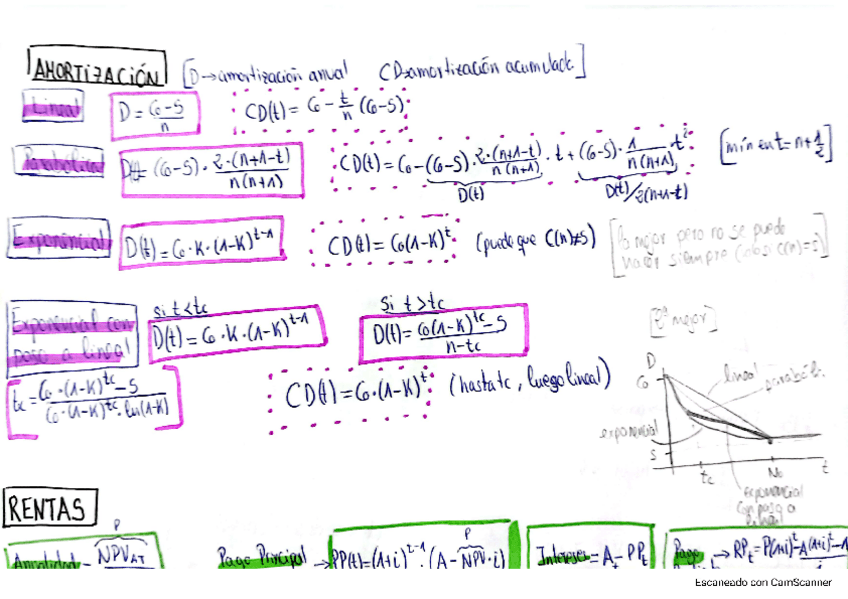 AMORTIZACIÓN [D→amortización anual CD→amortización acumulada.]
Lineal D = C₀-S/n CD(t) = C₀ - t/n (C₀-S)
Parabólica D(t) = (C₀-S) · 2·(n+1-t)/n(n+1) CD(t) = C₀ - (C₀-S) · 2·(n+1-t)/n(n+1) · t + (C₀-S) · 1/n(n+1) · t² [mín en t = n + 1/2]
D(t) D(t)/2(n+1-t)
Exponencial D(t) = C₀·K·(1-K)^t-1 CD(t) = C₀(1-K)^t (puede que C(n)≠S) [lo mejor pero no se puede
hacer siempre (casi C(n)=S)]
si t<tc si t>tc
Exponencial con
paso a lineal D(t) = C₀·K·(1-K)^t-1 D(t) = C₀(1-K)^tc - S/n-tc [2ª mejor]
tc = C₀·(1-K)^tc - S/C₀·(1-K)^tc · ln(1-K) CD(t) = C₀·(1-K)^t (hasta tc, luego lineal)
D
C₀
lineal
parabólic.
exponencial
S
tc
t
exponencial
con paso a
lineal
RENTAS
P
Anualidad = NPV Pago Principal → PP(t) = (1+i)^t-1 · (A - NPV·i) Intereses = A - PPt Pago → RPt = P(1+i)^t - A(1+i)^t-1
P
Escaneado con CamScanner